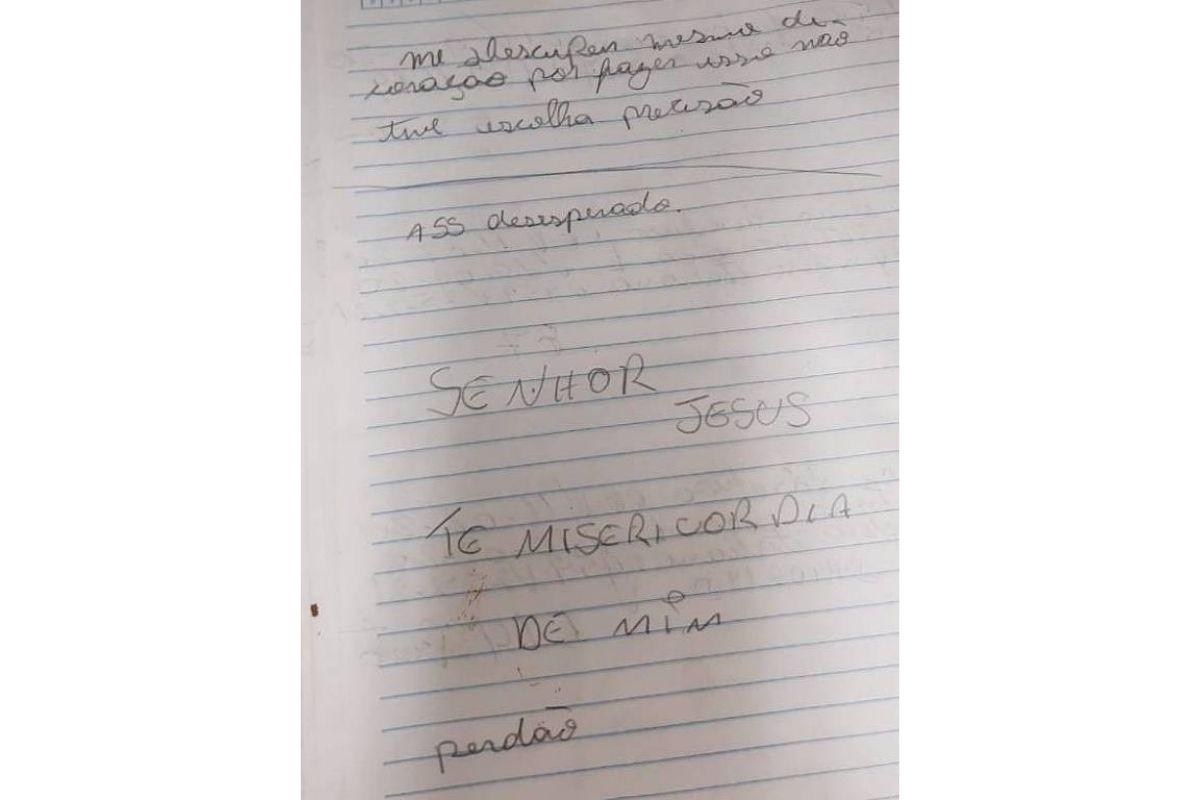 me descupen mesmo de
coração por fazer isso não
tive escolha precisão
ASS desesperado.
SENHOR
JESUS
TE MISERICORDIA
DE MIM
perdão